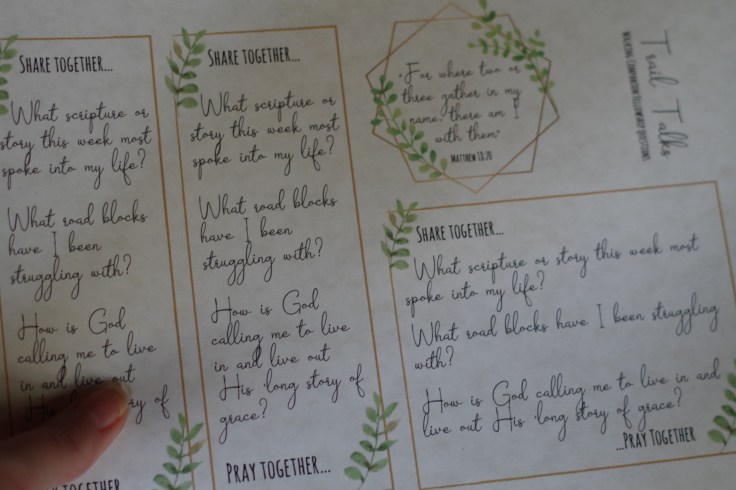 SHARE TOGETHER...
What scripture or
story this week most
spoke into my life?
What road blocks
have I been
struggling with?
How is God
calling me to live
in and live out
His ry of
PRAY TOGETHER...
SHARE TOGETHER...
What scripture or
story this week most
spoke into my life?
What road blocks
have I been
struggling with?
How is God
calling me to live
in and live out
His 'long story of
grace?
PRAY TOGETHER...
"For where two or
three gather in my
name, there am I
with them"
MATTHEW 18:20
Trail Talks
WALKING COMPANION FELLOWSHIP QUESTIONS
SHARE TOGETHER...
What scripture or story this week most
spoke into my life?
What road blocks have I been struggling
with?
How is God calling me to live in and
live out His 'long story of grace?
...PRAY TOGETHER